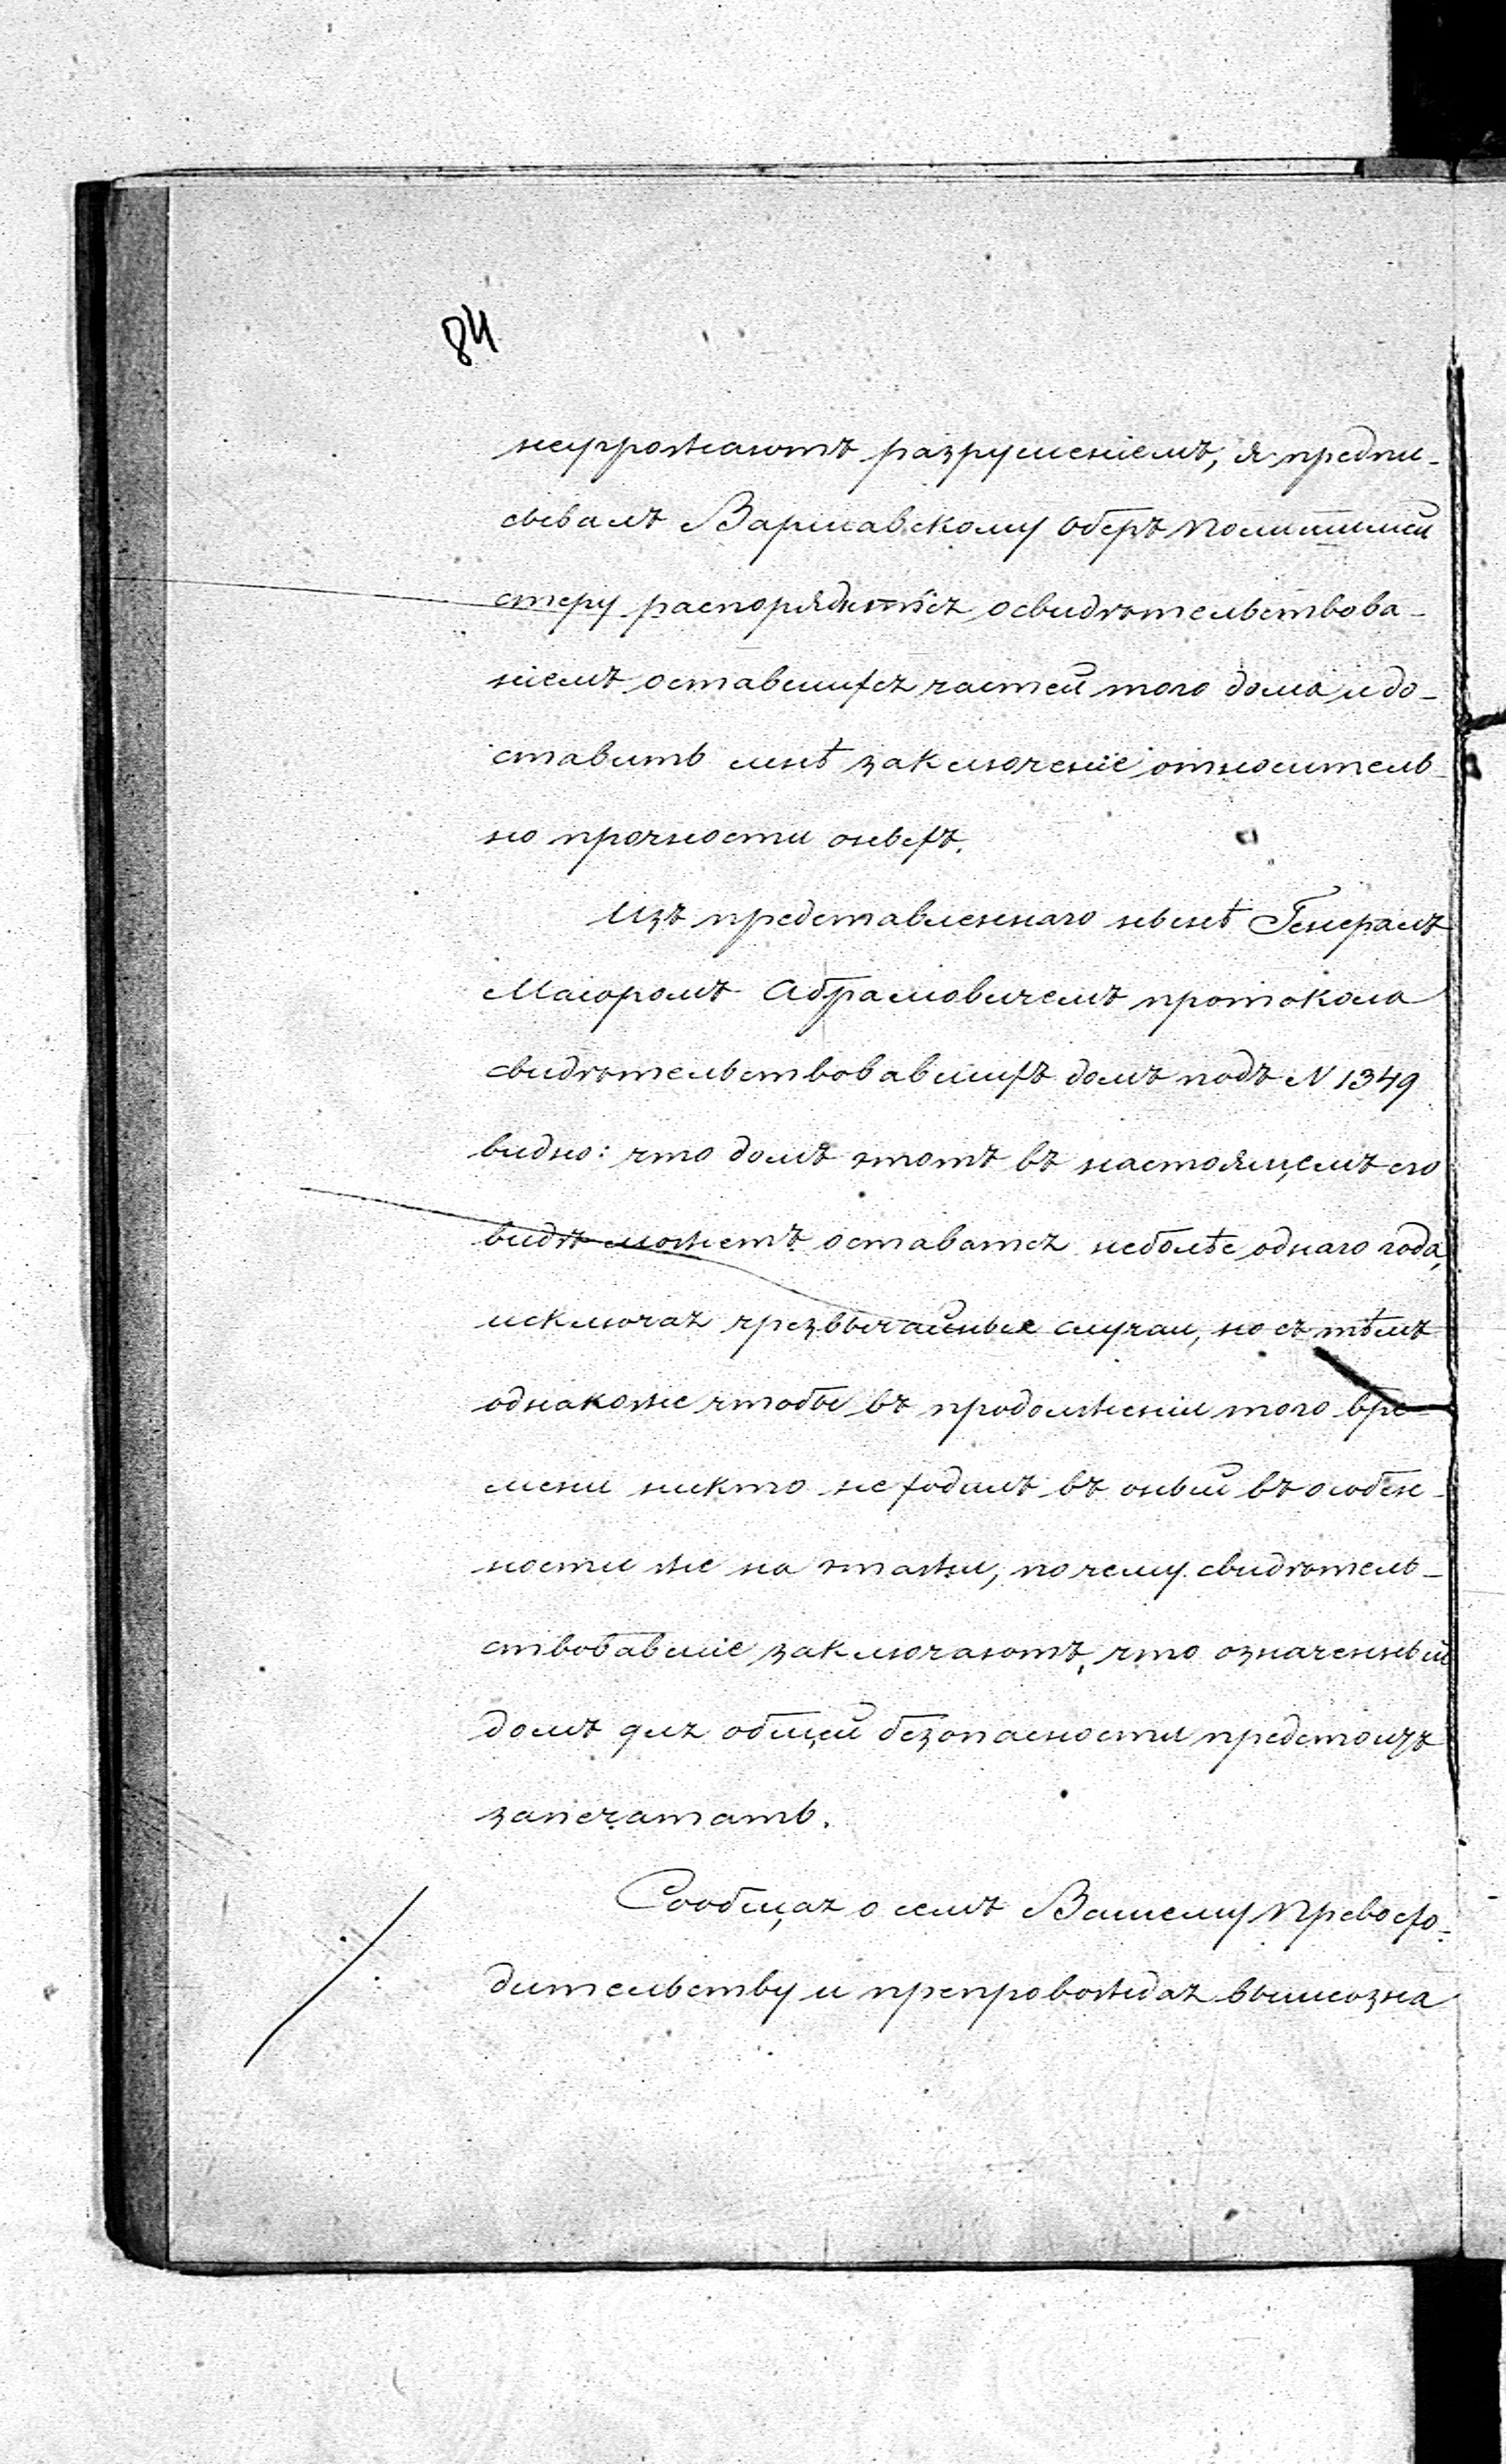 84
неугрожаютъ разрушеніемъ, я предпи-
сывалъ Варшавскому Оберъ Полиціймей
стеру распорядиться освидѣтельствова-
ніемъ оставшихся частей того дома и до-
ставить мнѣ заключеніе относитель-
но прочности оныхъ.
Изъ представленнаго нынѣ Генералъ
Маіоромъ Абрамовичемъ протокола
свидѣтельствовавшихъ домъ подъ N 1349
видно: что домъ этотъ въ настоящемъ его
видѣ можетъ оставаться неболѣе однаго года,
исключая чрезвычайные случаи, но съ тѣмъ
однакоже чтобы въ продолженіи того вре-
мени никто не ходилъ въ оный въ особен-
ности же на этажи, по чему свидѣтель-
ствовавшіе заключаютъ, что означенный
домъ для общей безопасности предстоитъ
запечатать.
Сообщая о семъ Вашему Превосхо-
дительству и препровождая вышеозна